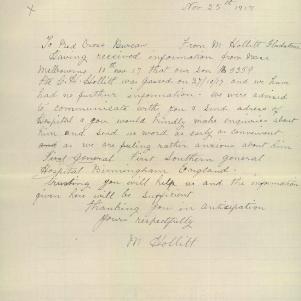 Nov 25th 1917
x
To Red Cross Bureau From M Hollitt Gladstone
Having received information from Base
Melbourne 10th Nov 17 that our son No 3259
Pte C.H. Hollitt was gassed on 27/10/17 and we have
had no further information. We were advised
to communicate with you & send adress of
Hospital & you would kindly make enquiries about
him and send us word as early as convenient
and as we are feeling rather anxious about him
First General First Southern general
Hospital Birmingham England.
Trusting you will help us and the information
given here will be sufficient
thanking you in anticipation
Yours respectfully
M Hollitt